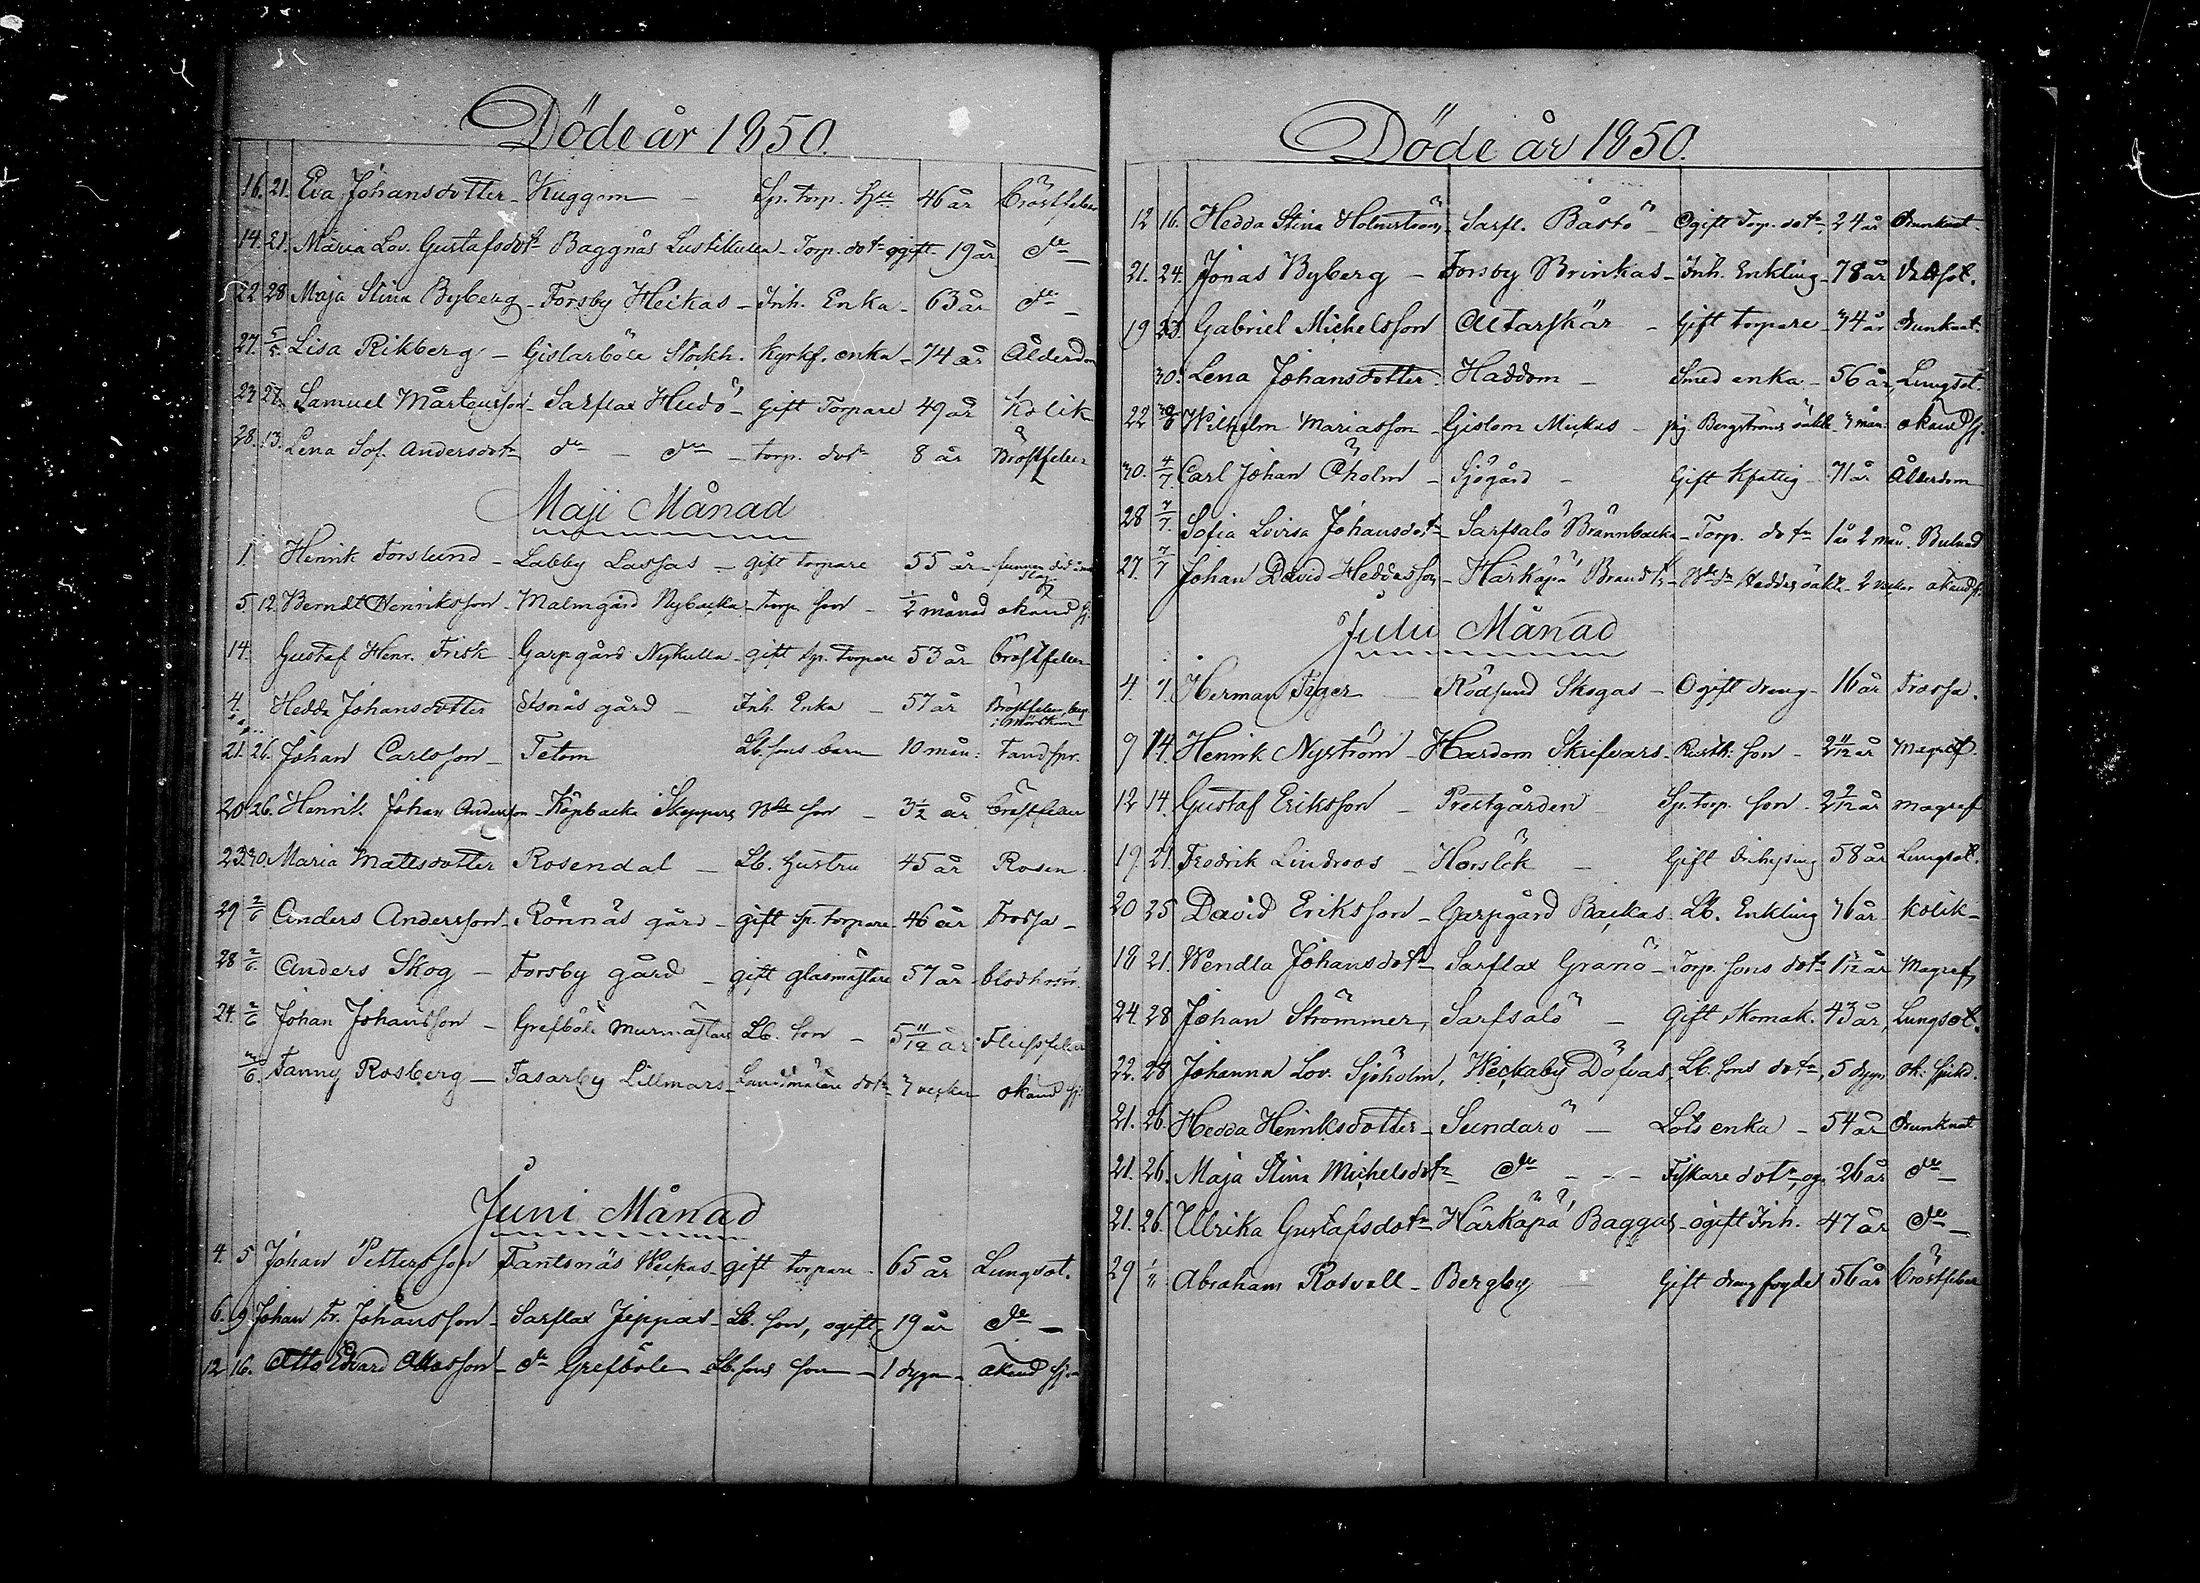 Döde år 1850.
16. 21. Eva Johansdotter - Kuggom - Sp. torp. h 46 år bröstfeber
14. 21. Maria Lov. Gustafsdotr Baggnäs Lustikulla - Torp. dotr ogift - 19 år do -
22 28 Maja Stina Byberg - Forsby Heikas - Inh. Enka - 63 år do -
27. 5/5. Lisa Rikberg - Gislarböle Stockh. Kyrkf. enka - 74 år Ålderdom
23 27. Samuel Mårtensson - Sarflax Hudö - gift Torpare 49 år Kolik
28. 13. Lena Sof. Andersdotr do - do - torp. dotr 8 år Bröstfeber
Maji Månad
1. Henrik Forslund - Labby Lassas - gift torpare 55 år - funnen död
slag
5. 12. Berndt Henriksson - Malmgård Nybacka - torp. son - 1/2 månad okänd sj.
14. Gustaf Henr. Frisk - Garpgård Nykulla - gift sp. torpare 53 år bröstfeber
4. Hedda Johansdotter Isnäs gård - Inh. Enka - 57 år Bröstfeber, begr.
i Mörskom
21. 26. Johan Carlsson - Tetom Lb. sons barn 10 mån: Tandspr.
20 26. Henrik Johan Andersson - Köpbacka Skeppars Bde son - 3 1/2 år bröstfeber
23. 30. Maria Mattsdotter Rosendal - Lb. hustru 45 år Rosen
29 2/6 Anders Andersson - Rönnäs gård - gift sp. torpare 46 år Frossa -
28 2/6. Anders Skog - Forsby gård - gift glasmästare 57 år - blodhosta
24. 2/6 Johan Johansson - Grefböle Murmästars Lb. son - 5 11/12 år Flussfeber
3/6. Fanny Rosberg - Tasarby Lillmars - Landtmätare dotr 7 veckor okänd sj.
Juni Månad
4. 5 Johan Pettersson Fantsnäs Weckas - gift torpare - 65 år Lungsot.
6. 9 Johan Fr. Johansson - Sarflax Jeppas - Lb. son, ogift, 19 år do -
12 16. Otto Edvard Ottosson - do Grefböle Lb. sons son - 1 dygn - okänd sj. -
Döde år 1850.
12 16. Hedda Stina Holmström, Sarfl. Båstö - Ogift Torp. dotr, 24 år drunknat.
21. 24. Jonas Byberg - Forsby Brinkas - Inh. Enkling - 78 år
19 23. Gabriel Michelsson Altarskär - Gift torpare - 34 år drunknat.
30. Lena Johansdotter. Haddom - Smed enka - 56 år, Lungsot.
22 30 Wilhelm Mariasson - Gislom Mickas - pig. Bergströms oäkta - 3 mån. okänd sj.
30. 4/7. Carl Johan Åholm - Sjögård - Gift Kfattig - 71 år Ålderdom
28 7/7. Sofia Lovisa Johansdotr - Sarfsalö Brännbacka - Torp. dotr 1 år 2 mån. Bulnad
27. 7/7 Johan David Heddasson - Härkäpä Brandts - Heddas oäkta - 2 veckor okänd sj.
Julii Månad
4. 7. Herman Tiger - Rödsund Skogas - Ogift dreng - 16 år Frossa.
9 14. Henrik Nyström - Hardom Skrifvars - Rusth. son - 2 11/12 år Magref.
12 14. Gustaf Eriksson - Prestgården Sp. torp. son - 2 9/12 år magref
19. 21. Fredrik Lindroos - Horslök - Gift 58 år Lungsot.
20 25 David Eriksson - Garpgård Backas. Lb. Enkling 76 år kolik -
18 21. Wendla Johansdotr - Sarflax Granö - Torp. sons dotr 1 /12 år Magref,
24. 28 Johan Strömmer, Sarfsalö - Gift Skomak. 43 år, Lungsot.
22. 28 Johanna Lov. Sjöholm, Weckaby Döfvas, Lb. sons dotr, 5 dygn, ok: sjukd.
21. 26. Hedda Henriksdotter - Sundarö - Lots enka - 54 år drunknat
21. 26. Maja Stina Michelsdotr - do - - - Fiskare dotr, og. 26 år do -
21. 26. Ulrika Gustafsdotr - Härkäpä Baggas - ogift Inh. 47 år do -
29 1/8 Abraham Rosvall - Bergby - Gift drengfogde 56 år bröstfeber